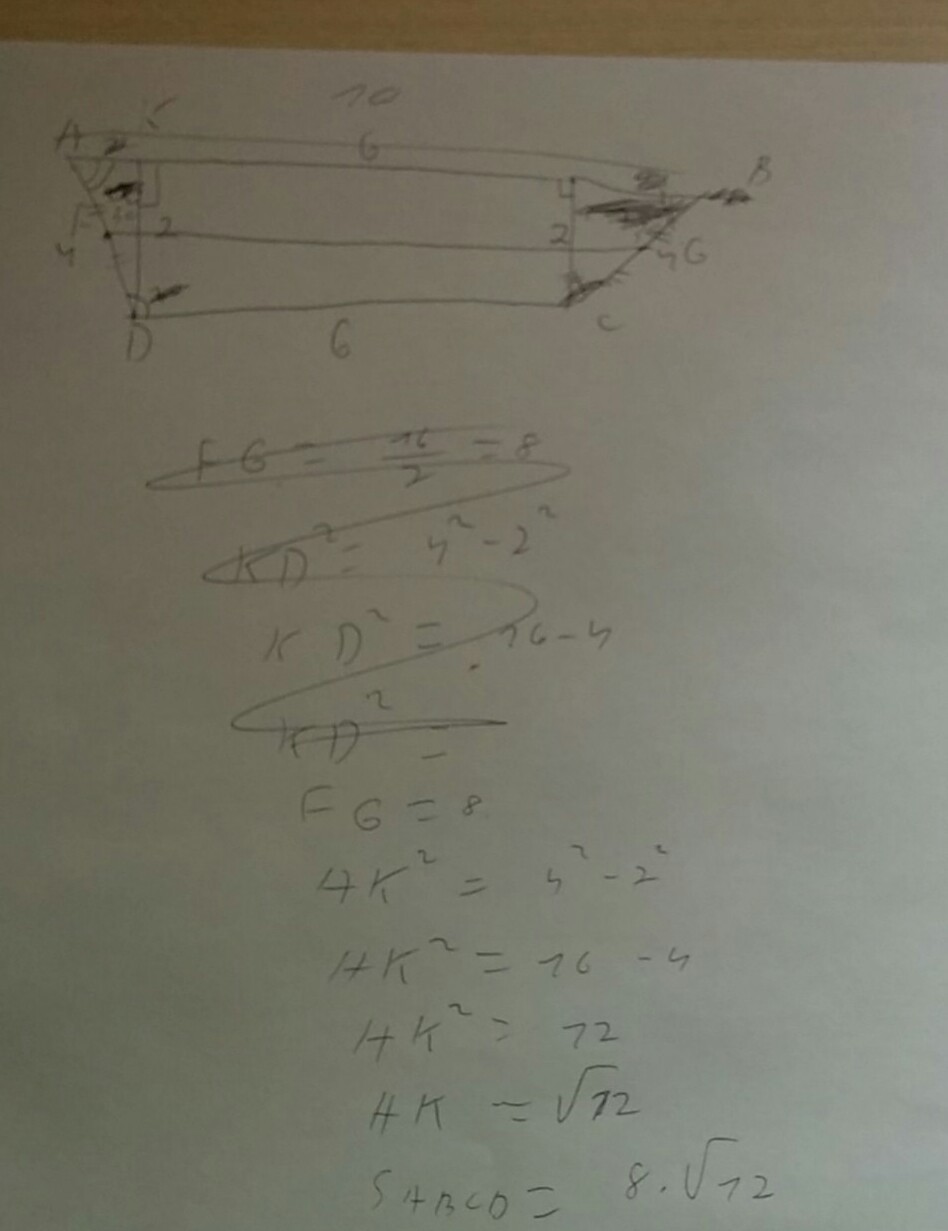 10
A K
6
B
2
4 2 2 4 G
D C
6
FG = 16/2 = 8
KD² = 4² - 2²
KD² = 16 - 4
KD² =
FG = 8
AK² = 4² - 2²
AK² = 16 - 4
AK² = 12
AK = √12
SABCD = 8 · √12